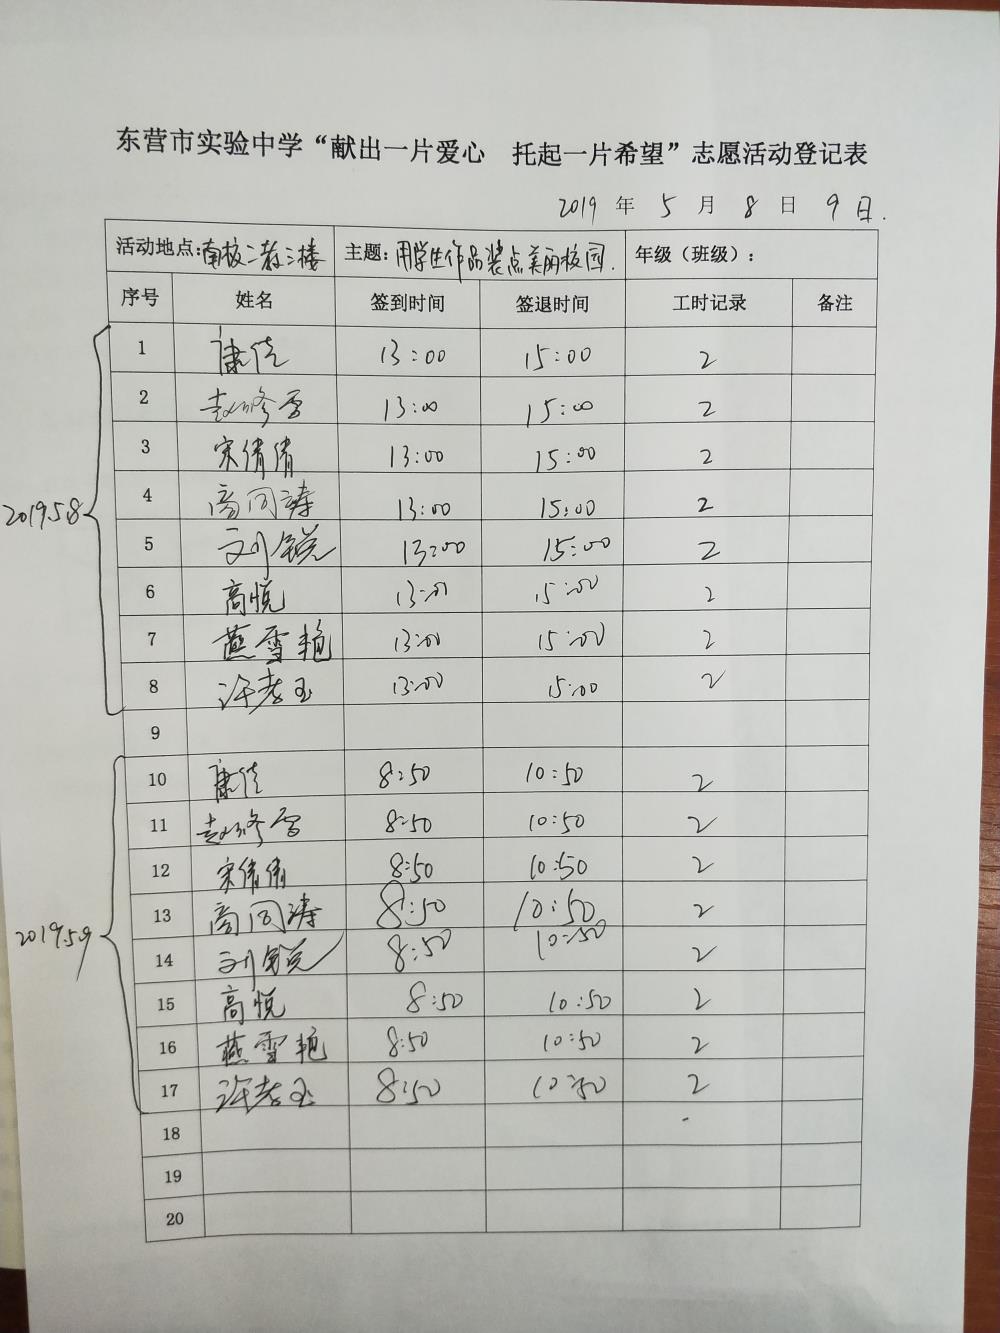 东营市实验中学“献出一片爱心 托起一片希望”志愿活动登记表
2019 年 5 月 8 日 9 日.
活动地点:南校二教三楼 主题:用学生作品装点美丽校园. 年级（班级）:
序号 姓名 签到时间 签退时间 工时记录 备注
2019.5.8
1 康佳 13:00 15:00 2
2 赵修雪 13:00 15:00 2
3 宋倩倩 13:00 15:00 2
4 商同涛 13:00 15:00 2
5 刘锐 13:00 15:00 2
6 高悦 13:00 15:00 2
7 燕雪艳 13:00 15:00 2
8 许孝玉 13:00 15:00 2
9
2019.5.9
10 康佳 8:50 10:50 2
11 赵修雪 8:50 10:50 2
12 宋倩倩 8:50 10:50 2
13 商同涛 8:50 10:50 2
14 刘锐 8:50 10:50 2
15 高悦 8:50 10:50 2
16 燕雪艳 8:50 10:50 2
17 许孝玉 8:50 10:50 2
18
19
20